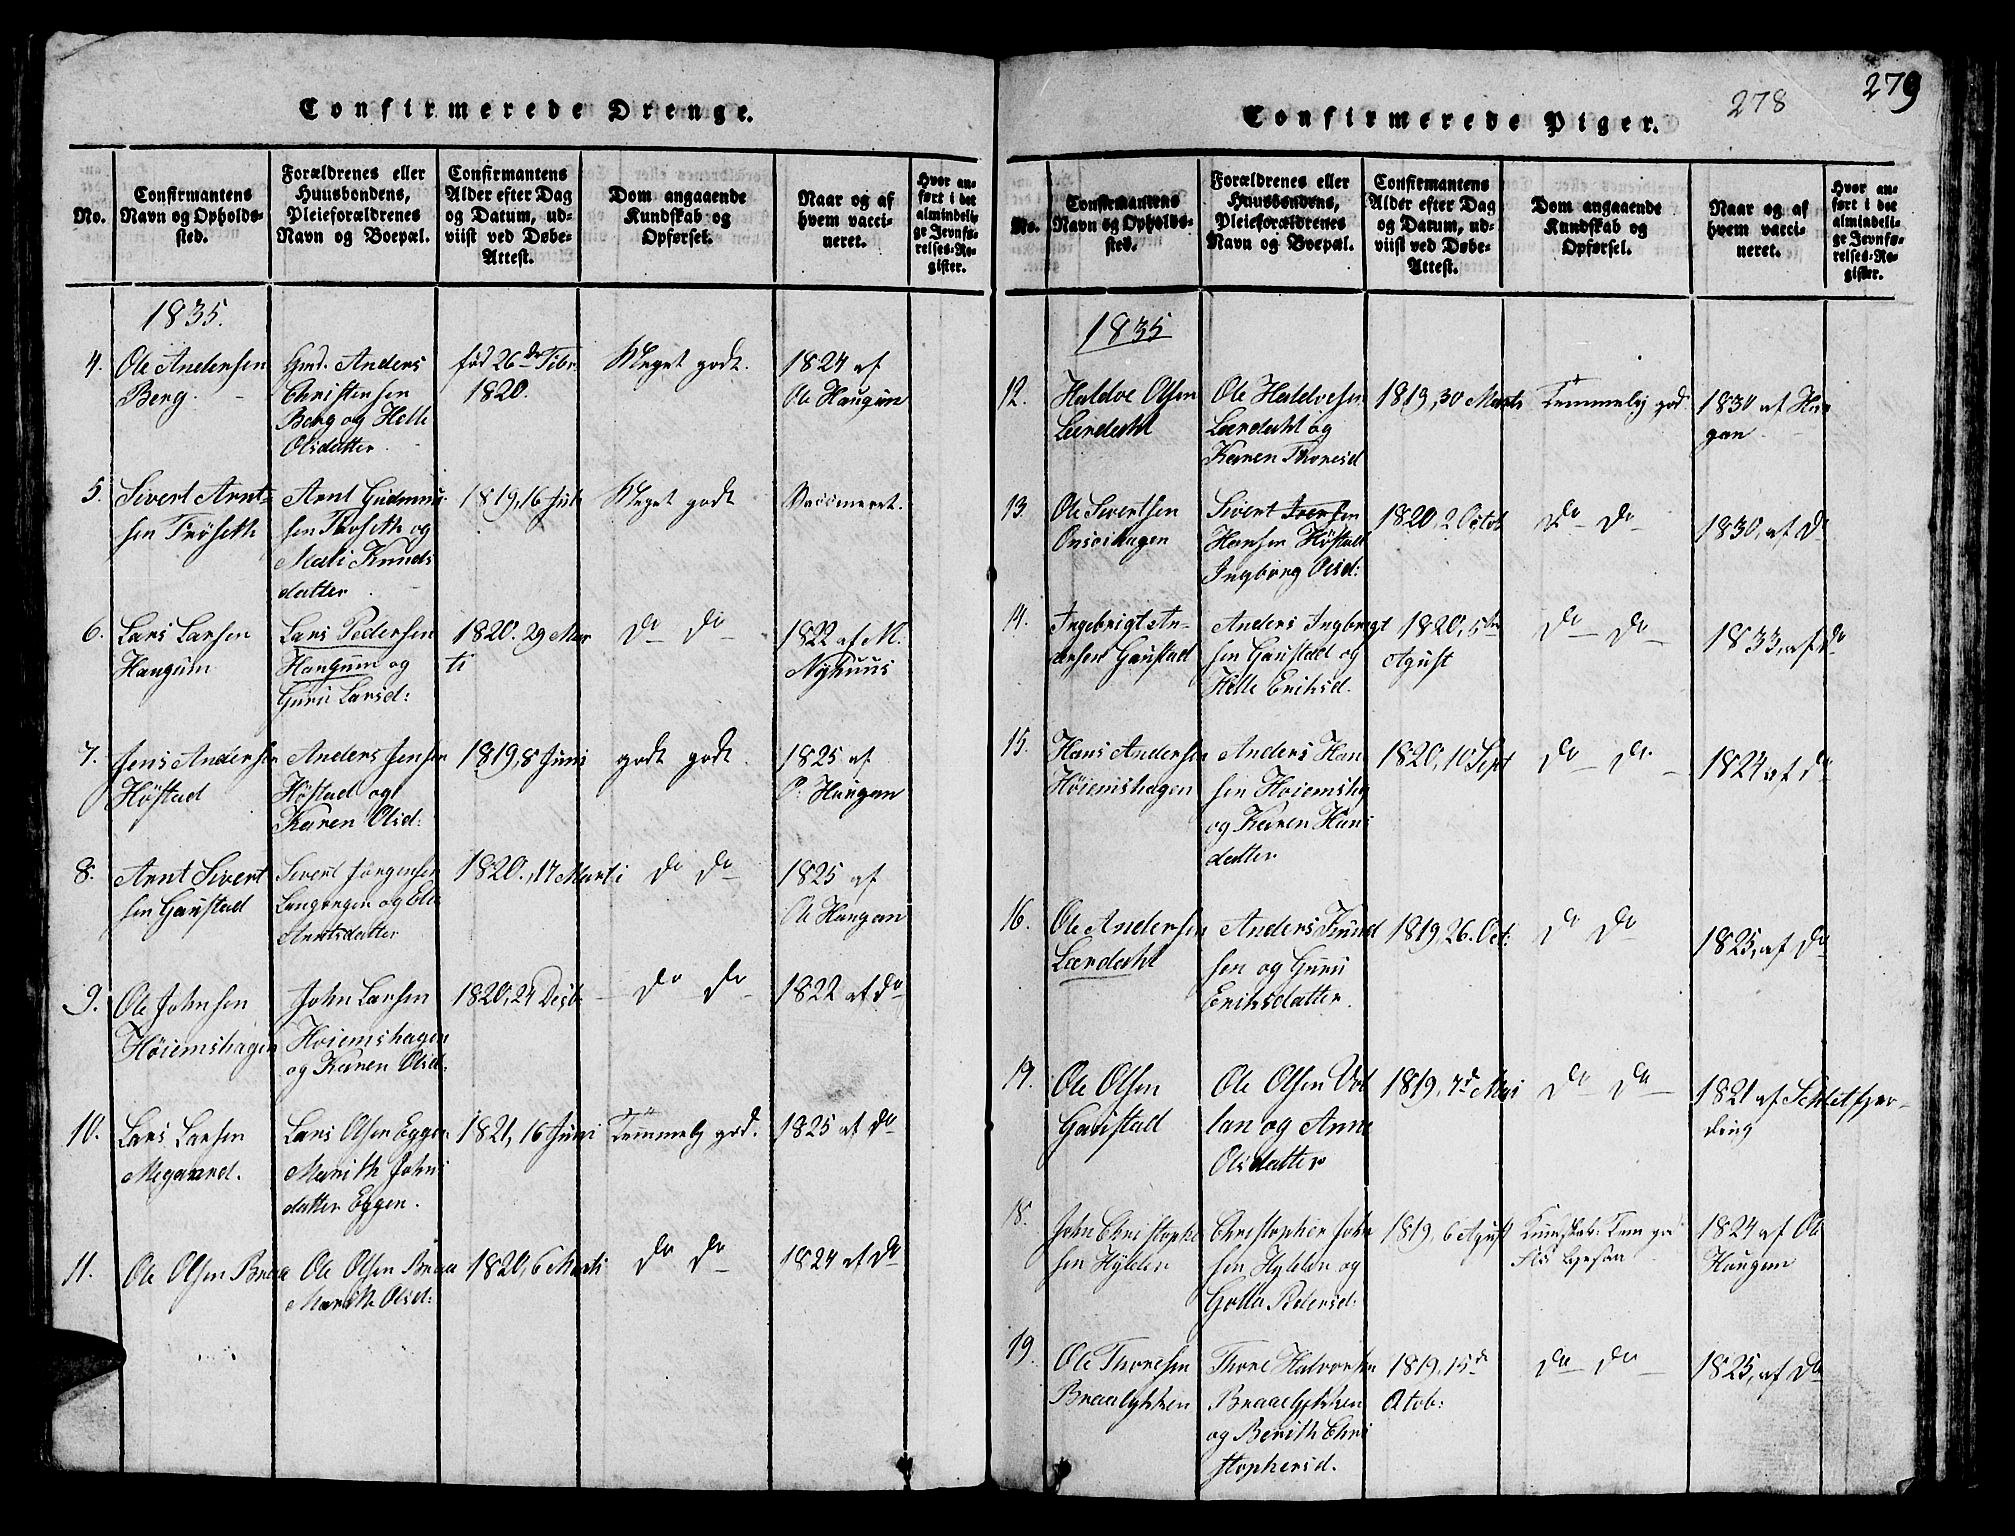 Confirmerede Drenge.
No.
Confirmantens
Navn og Opholds-
sted.
Forældrenes eller
Huusbondens,
Pleieforældrenes
Navn og Boepæl.
Confirmantens
Alder efter Dag
og Datum, ud-
viist ved Døbe-
Attest.
Dom angaaende
Kundskab og
Opførsel.
Naar og af
hvem vacci-
neret.
Hvor an-
ført i det
almindeli-
ge Jevnfø-
relses-Re-
gister.
1835.
4.
Ole Andersen
Berg.
Gmd. Anders
Christensen
Berg og Helle
Olsdatter
fød 26de Febr
1820.
Meget godt.
1824 af
Ole Haugan
5.
Sivert Arnt-
sen Trøseth
Arnt Gudmun
sen Trøseth og
Mali Knuds
datter
1819, 16 Juli
Meget godt
Vaccineret.
6.
Lars Larsen
Haugum
Lars Pedersen
Haugum og
Guru Larsd:
1820. 29 Mar
ti
do do
1822 af M.
Nyhuus
7.
Jens Andersen
Høstad
Anders Jensen
Høstad og
Karen Olsd:
1819, 8 Juni
godt godt.
1825 af
O. Haugan
8.
Arnt Sivert
sen Gaustad
Sivert Jørgensen
Langørgen og Elen
Arntsdatter
1820. 17 Marti
do do
1825 af
Ole Haugan
9.
Ole Johnsen
Høiemshagen
John Larsen
Høiemshagen
og Karen Olsd:
1820, 24 Desbr
do do
1822 af do
10.
Lars Larsen
Megaard.
Lars Olsen Eggen
Marith Johns
datter Eggen.
1821, 16 Juni
Temmelig god.
1825 af do
11.
Ole Olsen Braa
Ole Olsen Braa
Marith Olsd:
1820, 6 Marti
do do
1824 af do
278
279
Confirmerede Piger.
No.
Confirmantens
Navn og Opholds-
sted.
Forældrenes eller
Huusbondens,
Pleieforældrenes
Navn og Boepæl.
Confirmantens
Alder efter Dag
og Datum, ud-
viist ved Døbe-
Attest.
Dom angaaende
Kundskab og
Opførsel.
Naar og af
hvem vacci-
neret.
Hvor an-
ført i det
almindeli-
ge Jevnfø-
relses-Re-
gister.
1835
12.
Haldve Olsen
Lærdahl
Ole Haldvesen
Lærdahl og
Karen Thoresd
1819, 30 Marts
Temmelig god
1830 af Hau
gan
13.
Ole Sivertsen
Onsøihagen
Sivert Iversen
Hansen Høstad
Ingborg Olsd:
1820, 2 Octob
do do
1830, af do
14.
Ingebrigt An-
dersen Gaustad
Anders Ingbrigt
sen Gaustad og
Helle Eriksd.
1820, 5te
Agust
do do
1833, af do
15.
Hans Andersen
Høiemshagen
Anders Han
sen Høiemshg
og Karen Hans
datter
1820, 10 Sept
do do
1824 af do
16.
Ole Andersen
Lærdahl
Anders Knud
sen og Guru
Eriksdatter.
1819, 26. Oct:
do do
1825, af do
17.
Ole Olsen
Gaustad
Ole Olsen Vol
lan og Anne
Olsdatter
1819, 7d Mai
do do
1821 af Schletfjer-
ding
18.
John Christophe
sen Hylden
Christopher John
sen Hylden og
Gølla Pedersd:
1819, 6 Agust
Kundskab: Tem god
1824 af Ole
Haugan
19.
Ole Thoresen
Braalykken
Thore Halvorsen
Braalykken
og Berith Chri
stophersd.
1819, 15de
Otob:
do do
1825, af do